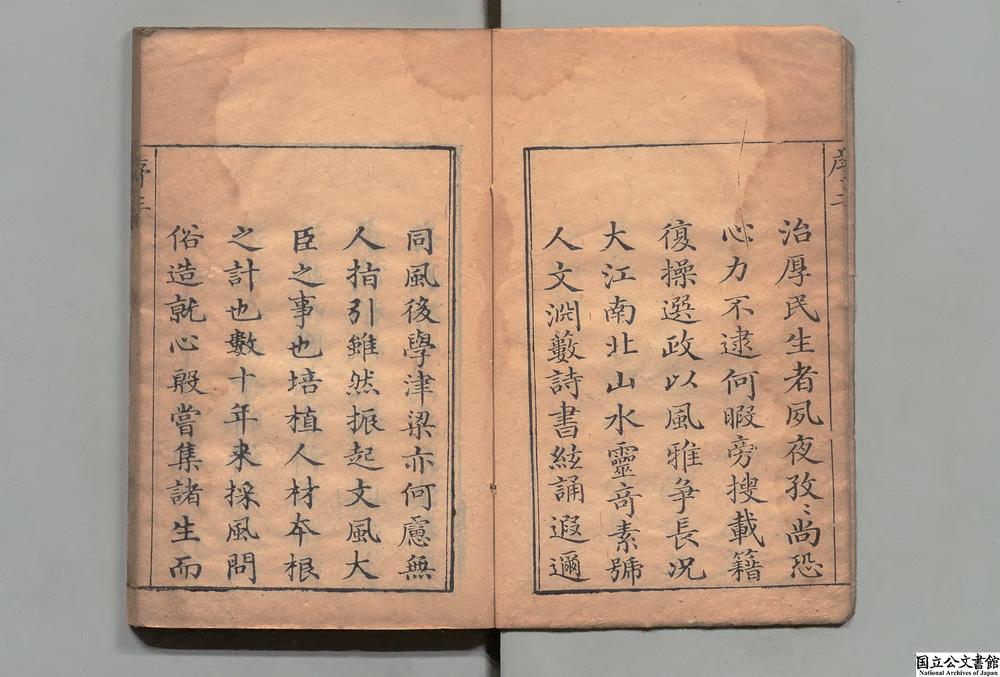 序二
治厚民生者夙夜孜〻尚恐
心力不逮何暇旁搜載籍
復操選政以風雅爭長況
大江南北山水靈奇素號
人文淵藪詩書絃誦遐邇
同風後學津梁亦何慮無
人指引雖然振起文風大
臣之事也培植人材本根
之計也數十年来採風問
俗造就心殷嘗集諸生而
序三
国立公文書館
National Archives of Japan